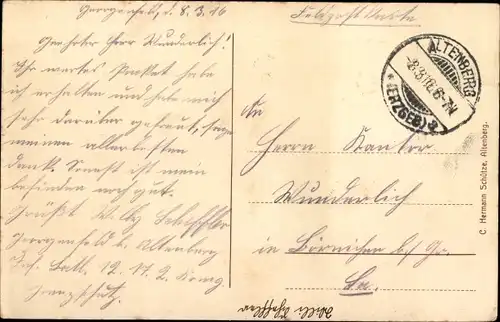 Georgenfeld, d. 8.3.16
Geehrter Herr Wunderlich!
Ihr wertes Packet habe
ich erhalten und habe mich
sehr darüber gefreut, sage
meinen allerbesten
Dank. Sonst ist mein
befinden noch gut.
Grüßt Willy
Georgenfeld b. Altenberg
Batl. 12. 17. 2. Komp.
Grenzschutz.
Feldpost Karte
ALTENBERG
8.3.16. 6-7N
* (ERZGEB.) a
An
Herrn Kantor
Wunderlich
in Börnichen bei
C. Hermann Schütze, Altenberg.